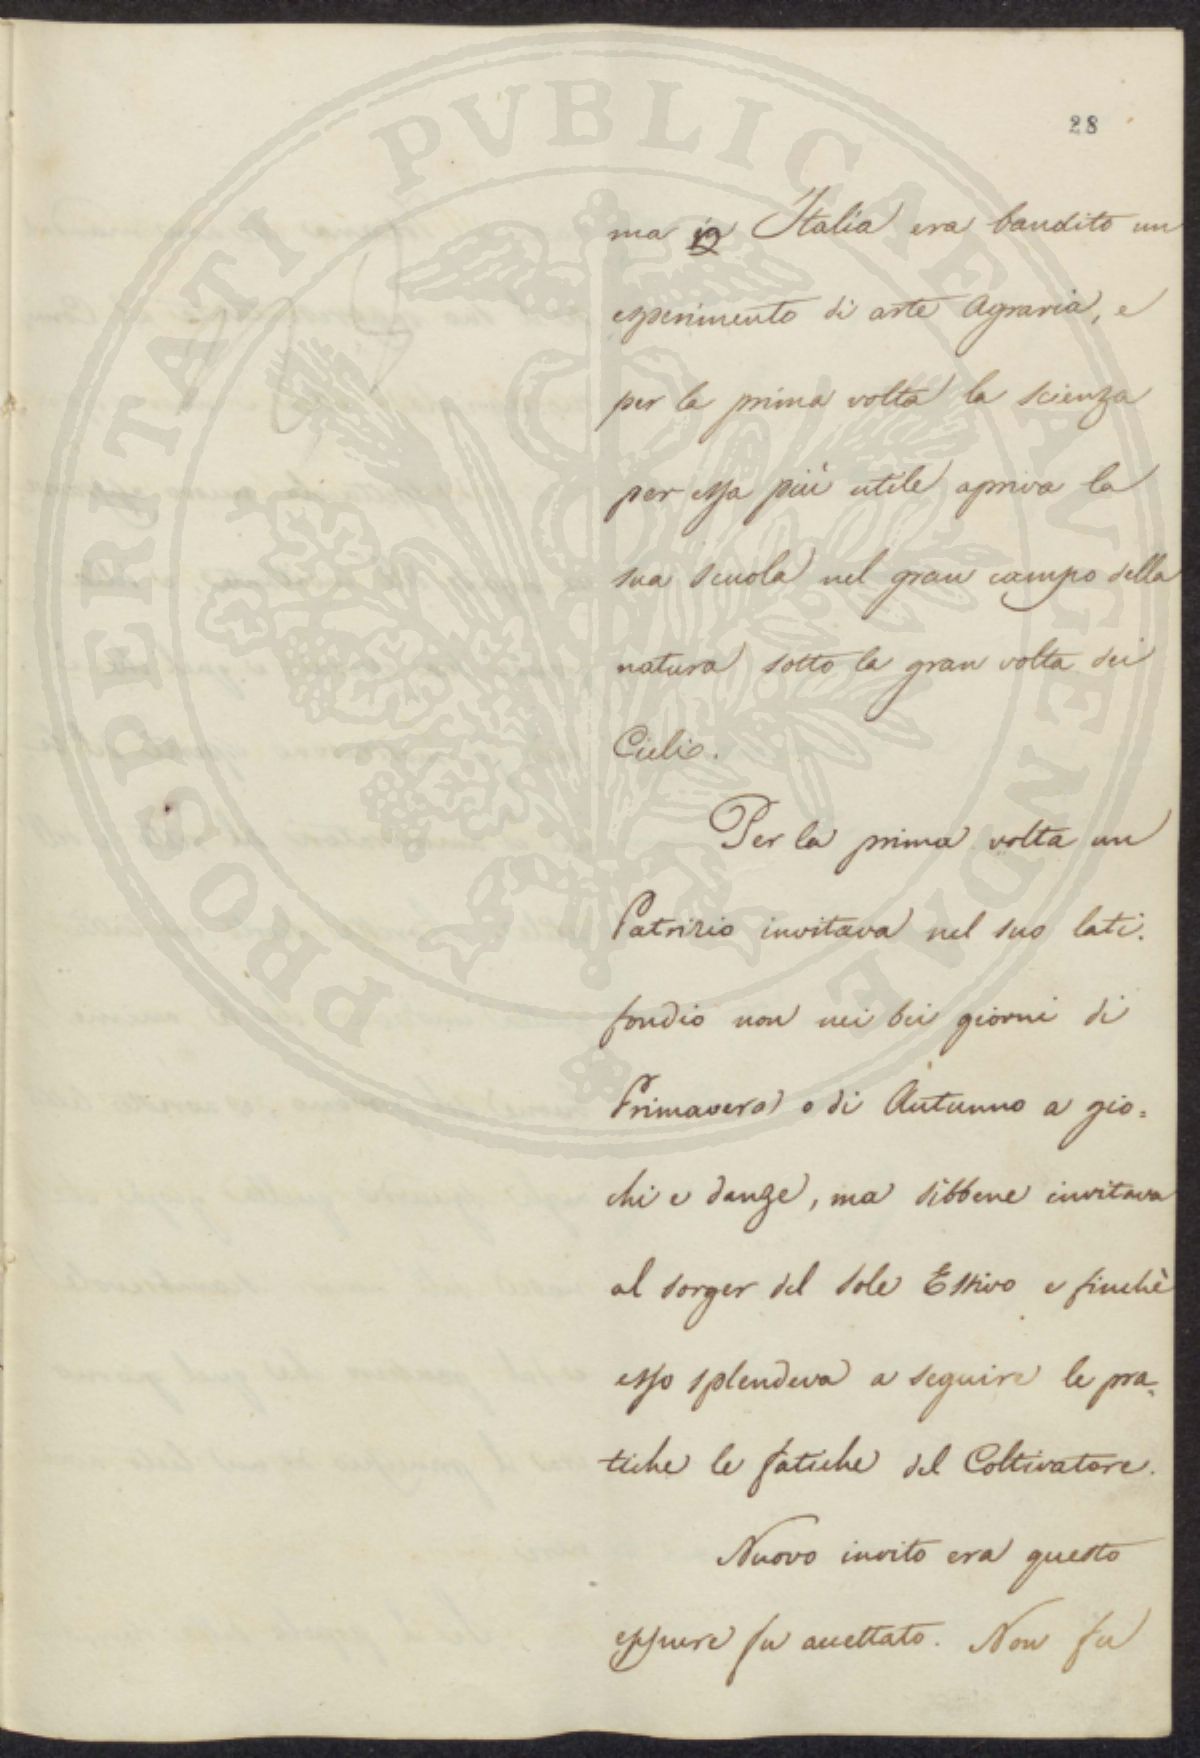 PROSPERITATI PVBLICAE AVGENDAE
28
ma in Italia era bandito un
esperimento di arte Agraria, e
per la prima volta la scienza
per essa più utile apriva la
sua scuola nel gran campo della
natura sotto la gran volta dei
Cieli.
Per la prima volta un
Patrizio invitava nel suo lati-
fondio non nei bei giorni di
Primavera o di Autunno a gio-
chi e danze, ma sibbene invitava
al sorger del sole Estivo e finchè
esso splendeva a seguire le pra-
tiche le fatiche del Coltivatore.
Nuovo invito era questo
eppure fu accettato. Non fu